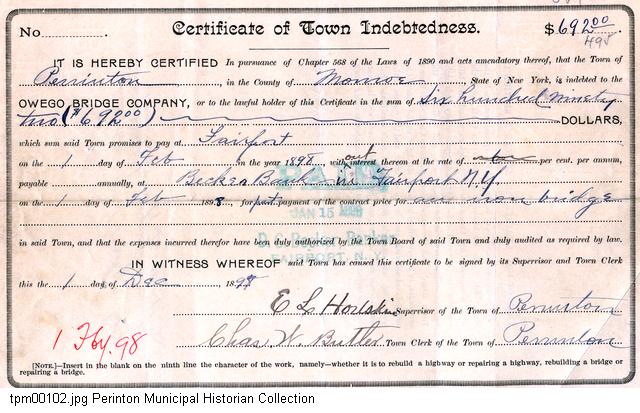 No Certificate of Town Indebtedness. $692.00
495
IT IS HEREBY CERTIFIED In pursuance of Chapter 568 of the Laws of 1890 and acts amendatory thereof, that the Town of
Perrinton, in the County of Monroe, State of New York, is indebted to the
OWEGO BRIDGE COMPANY, or to the lawful holder of this Certificate in the sum of Six hundred ninety
two ($692.00) DOLLARS,
which sum said Town promises to pay at Fairport
on the 1 day of Feb in the year 1898, without interest thereon at the rate of per cent. per annum,
payable annually, at Becker Bank in Fairport N.Y.
on the 1 day of Feb 1898. for part payment of the contract price for an iron bridge
PAID
JAN 15
FAIRPORT, N.Y.
in said Town, and that the expenses incurred therefor have been duly authorized by the Town Board of said Town and duly audited as required by law.
IN WITNESS WHEREOF said Town has caused this certificate to be signed by its Supervisor and Town Clerk
this the 1 day of Dec 1897
E L Hodskin Supervisor of the Town of Perrinton
1 Fby. 98
Chas W. Butler Town Clerk of the Town of Perrinton
[NOTE.]—Insert in the blank on the ninth line the character of the work, namely—whether it is to rebuild a highway or repairing a highway, rebuilding a bridge or
repairing a bridge.
tpm00102.jpg Perinton Municipal Historian Collection